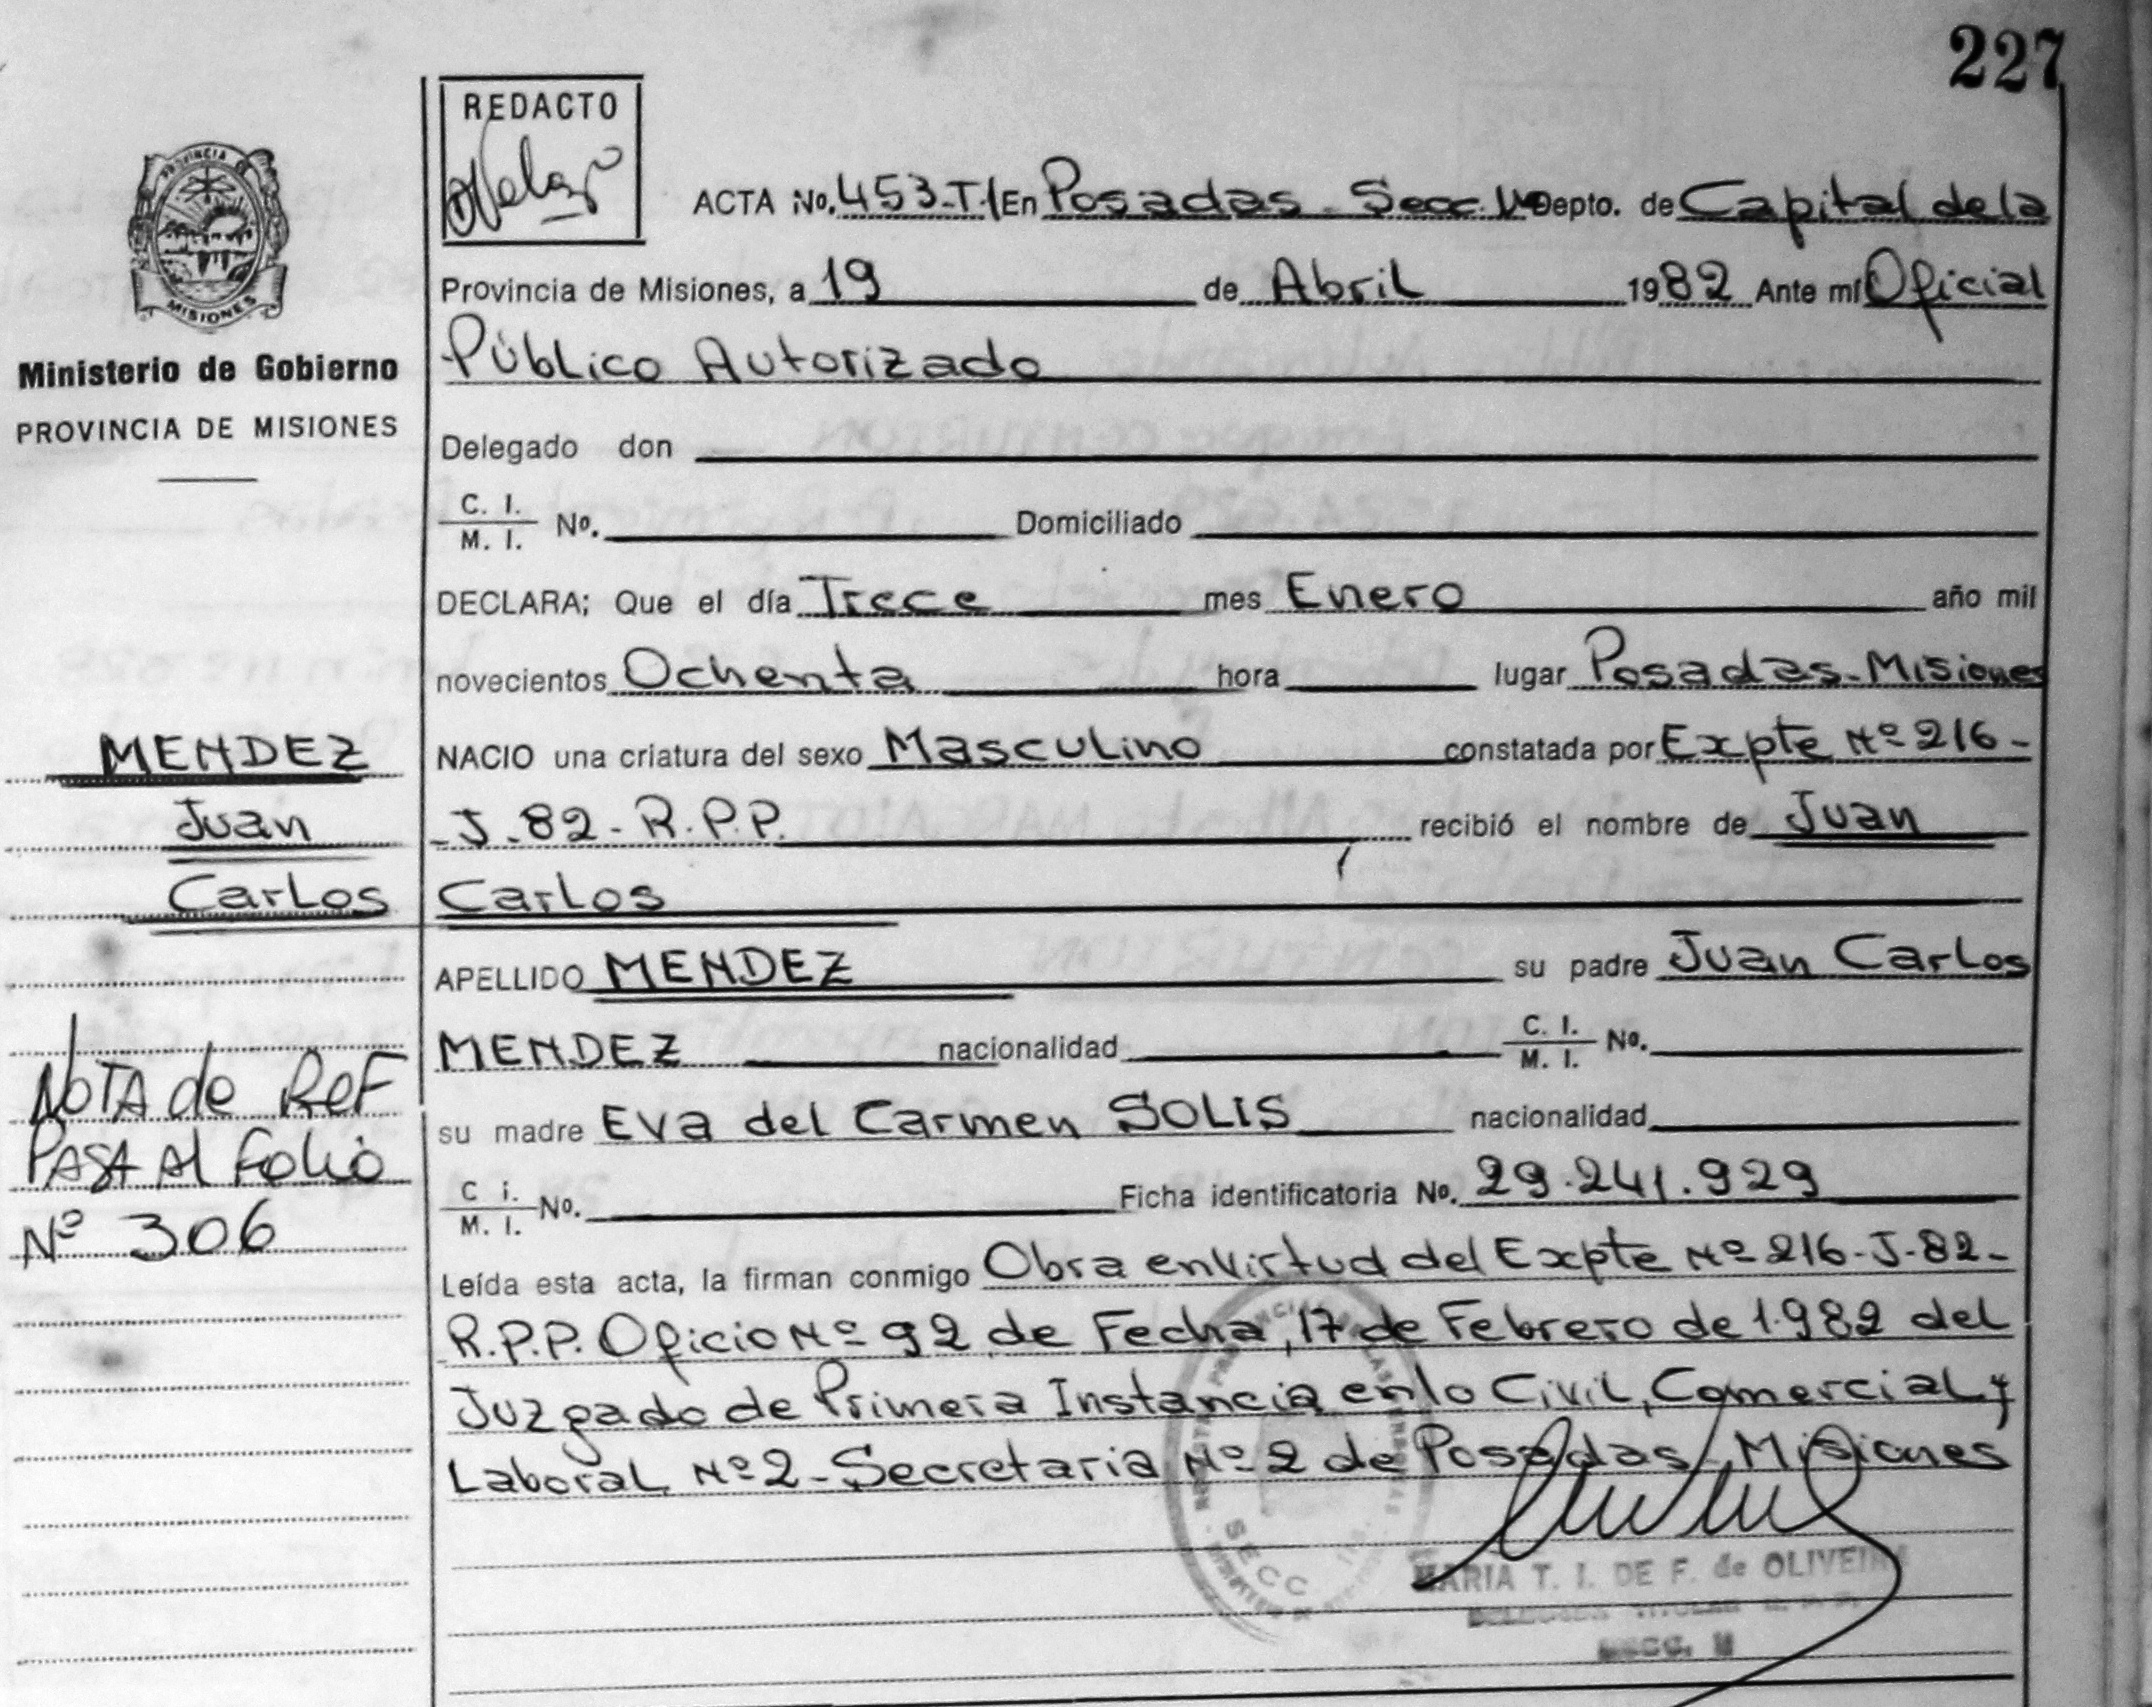 227
REDACTO
PROVINCIA DE
MISIONES
Ministerio de Gobierno
PROVINCIA DE MISIONES
ACTA No. 453-T-I En Posadas - Secc. Depto. de Capital de la
Provincia de Misiones, a 19 de Abril 1982 Ante mí Oficial
Público Autorizado
Delegado don
C. I.
M. I. No. Domiciliado
DECLARA; Que el día Trece mes Enero año mil
novecientos Ochenta hora lugar Posadas-Misiones
NACIO una criatura del sexo Masculino constatada por Expte Nº 216-
-J-82-R.P.P. recibió el nombre de Juan
Carlos
APELLIDO MENDEZ su padre Juan Carlos
MENDEZ nacionalidad C. I.
M. I. No.
su madre Eva del Carmen SOLIS nacionalidad
C i.
M. I. No. Ficha identificatoria No. 29.241.929
Leída esta acta, la firman conmigo Obra en Virtud del Expte Nº 216-J-82-
R.P.P. Oficio Nº 92 de Fecha, 17 de Febrero de 1.982 del
Juzgado de Primera Instancia en lo Civil, Comercial y
Laboral Nº 2-Secretaria Nº 2 de Posadas-Misiones
MENDEZ
Juan
Carlos
NOTA de REF
PASA Al Folio
Nº 306
SECC
MARIA T. I. DE F. de OLIVEIRA